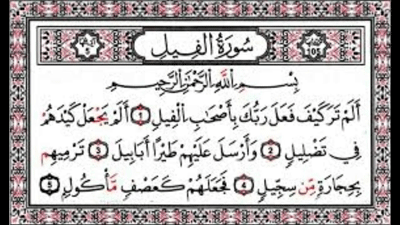 سُورَةُ الْفِيلِ
بِسْمِ اللَّهِ الرَّحْمَٰنِ الرَّحِيمِ
أَلَمْ تَرَ كَيْفَ فَعَلَ رَبُّكَ بِأَصْحَابِ الْفِيلِ ١ أَلَمْ يَجْعَلْ كَيْدَهُمْ
فِي تَضْلِيلٍ ٢ وَأَرْسَلَ عَلَيْهِمْ طَيْرًا أَبَابِيلَ ٣ تَرْمِيهِم
بِحِجَارَةٍ مِّن سِجِّيلٍ ٤ فَجَعَلَهُمْ كَعَصْفٍ مَّأْكُولٍ ٥